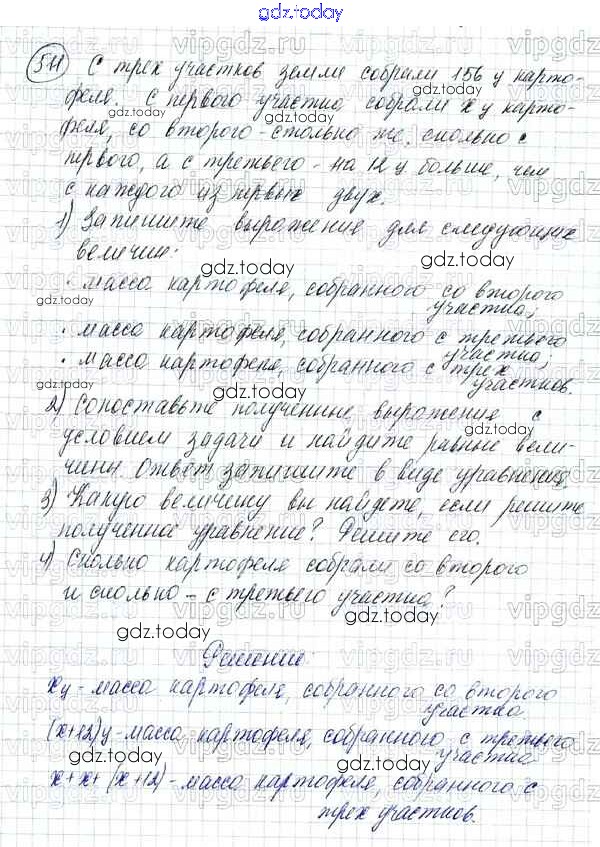 gdz.today
541 С трех участков земли собрали 156 ц карто-
феля. С первого участка собрали x ц карто-
gdz.today
феля, со второго - столько же, сколько с
первого, а с третьего - на 12 ц больше, чем
с каждого из первых двух.
gdz.today
1) Запишите выражения для следующих
величин:
gdz.today
gdz.today
· масса картофеля, собранного со второго
участка;
· масса картофеля, собранного с третьего
участка;
· масса картофеля, собранного с трех
участков.
gdz.today
gdz.today
2) Сопоставьте полученные выражения с
условием задачи и найдите равные вели-
чины. Ответ запишите в виде уравнения.
3) Какую величину вы найдете, если решите
gdz.today
полученное уравнение? Решите его.
4) Сколько картофеля собрали со второго
и сколько - с третьего участка?
gdz.today
Решение:
xц - масса картофеля, собранного со второго
gdz.today
участка.
(x+12)ц - масса картофеля, собранного с третьего
участка
gdz.today
x+x+(x+12) - масса картофеля, собранного с
трех участков.
gdz.today